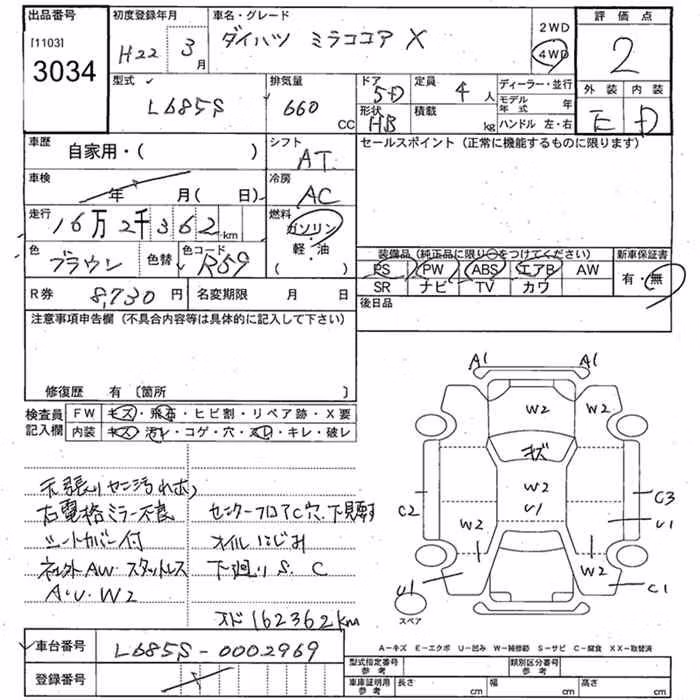 出品番号 初度登録年月 車名・グレード 評価点
[1103] H22年 3月 ダイハツ ミラココア X 2WD
3034 4WD 2
型式 排気量 ドア 定員 ディーラー・並行 外装 内装
L685S 660 CC 5D 4人 モデル年式 年
形状 HB 積載 kg ハンドル 左・右 E D
車歴 自家用・( ) シフト AT セールスポイント(正常に機能するものに限ります)
車検 年 月(日) 冷房 AC
走行 16万2千362km 燃料 ガソリン
色 ブラウン 色替 色コード R59 軽・油 ( )
装備品(純正品に限り○をつけてください) 新車保証書
PS PW ABS エアB AW 有・無
SR ナビ TV カワ
R券 8,730円 名変期限 月 日 後日品
注意事項申告欄(不具合内容等は具体的に記入して下さい)
修復歴 有〔箇所 〕
検査員 FW キズ・飛石・ヒビ割・リペア跡・X要
記入欄 内装 キズ・汚レ・コゲ・穴・スレ・キレ・破レ
A1 A1
W2 W2
キズ
W2
C2 U1 C3
W2 U1
W2
U1 C1
スペア
天張り
右電格ミラー不良 センターフロアC穴、下見
シートカバー付 オイルにじみ
社外AW・スタットレス 下廻りS、C
A・U・W2
オド162362km
A−キズ E−エクボ U−凹み W−補修跡 S−サビ C−腐食 XX−取替済
車台番号 L685S-0002969
登録番号
型式指定番号 参考 類別区分番号 参考
車庫証明用 参考 長さ cm 幅 cm 高さ cm